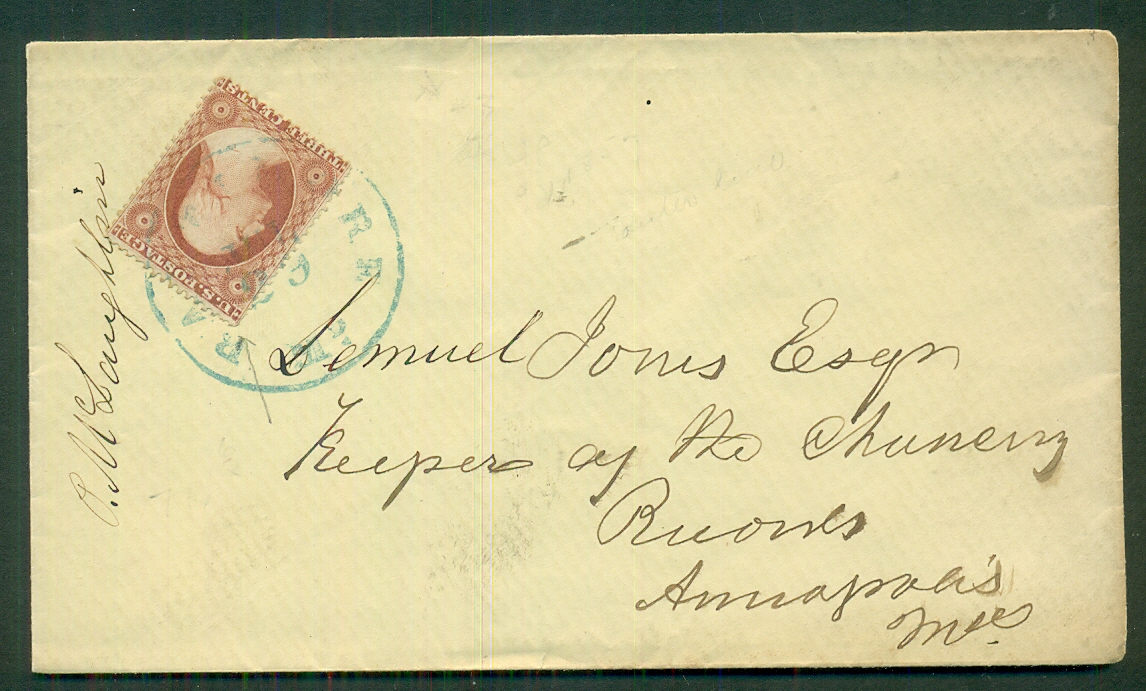 THREE CENTS
U.S. POSTAGE
Lemuel Jones Esqr
Keeper of the Chancery
Records
Annapolis
Md
McLaughlin